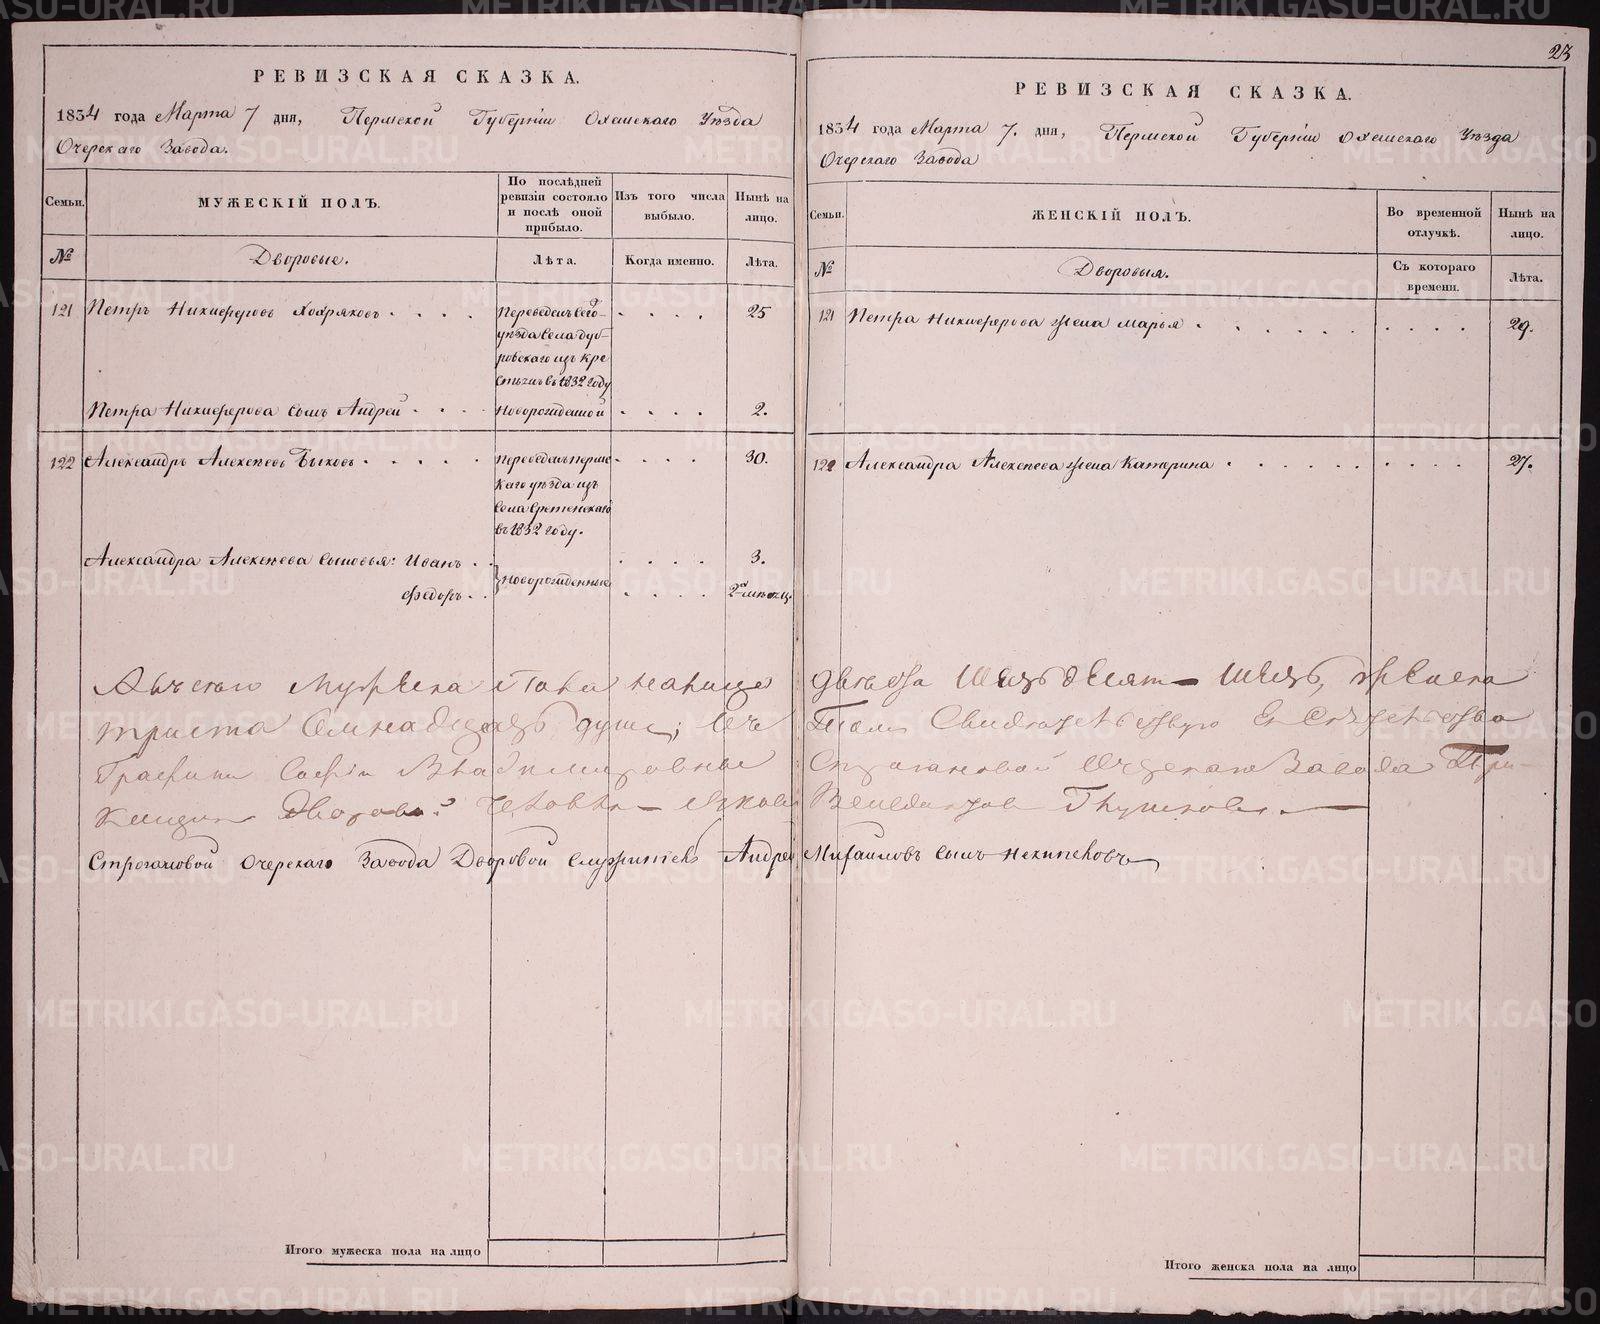 23
РЕВИЗСКАЯ СКАЗКА.
1834 года Марта 7 дня, Пермской Губерніи Оханскаго Уѣзда
Очерскаго Завода.
Семьи.
МУЖЕСКІЙ ПОЛЪ.
По послѣдней
ревизіи состояло
и послѣ оной
прибыло.
Изъ того числа
выбыло.
Нынѣ на
лицо.
№
Дворовые.
Лѣта.
Когда именно.
Лѣта.
121 Петръ Никифоровъ Хохряковъ . . . .
Переведенъ сего
уѣзда села дуб-
ровскаго изъ кре
стьянъ въ 1832 году
. . . . 25
Петра Никифорова сынъ Андрей . . . Новорожденной . . . . 2.
122 Александръ Алексѣевъ Быковъ . . . . .
переведенъ перм
скаго уѣзда изъ
села Срѣтенскаго
въ 1832 году.
. . . . 30.
Александра Алексѣева сыновья: Иванъ . . . . . . 3.
Федоръ . .
новорожденные
. . . . 2 мѣсяц.
Итого мужеска пола на лицо
РЕВИЗСКАЯ СКАЗКА.
1834 года Марта 7. дня, Пермской Губерніи Оханскаго Уѣзда
Очерскаго Завода
Семьи.
ЖЕНСКІЙ ПОЛЪ.
Во временной
отлучкѣ.
Нынѣ на
лицо.
№
Дворовыя.
Съ котораго
времени.
Лѣта.
121 Петра Никифорова жена Марья . . . . . . . . . . 29.
122 Александра Алексѣева жена Катерина . . . . . . . . . . 27.
мужеска пола налице двѣсти Шестьдесят Шесть, женска
триста душъ;
Графини Софіи Владимировны Строгановой Очерскаго Завода При-
кащикъ
Строгановой Очерскаго Завода Дворовой служитель Андрей Михайловъ сынъ
Итого женска пола на лицо
METRIKI.GASO-URAL.RU